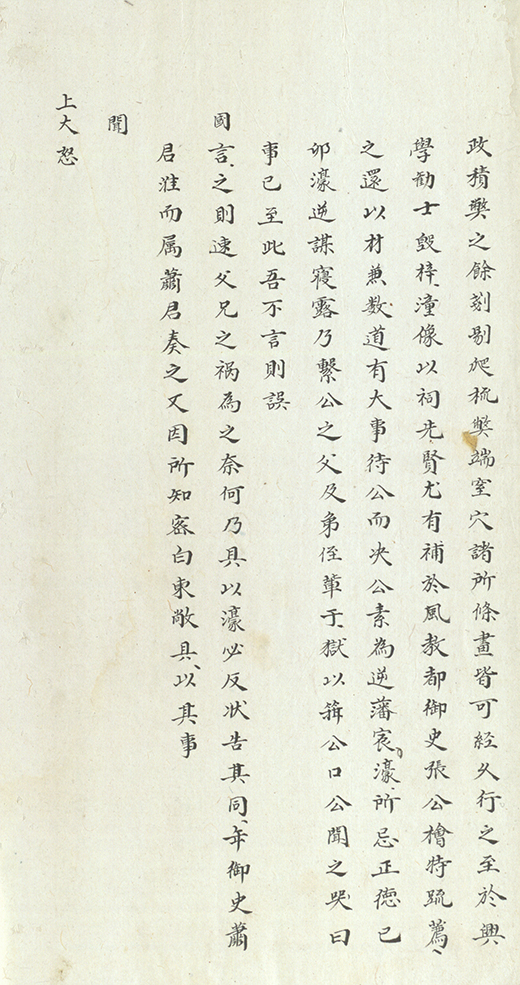 政積獘之餘刻剔爬梳獘端室穴諸所條畫皆可經久行之至於興
學勸士毀梓潼像以祠先賢尤有補於風教都御史張公檜特疏薦
之還以材兼数道有大事待公而决公素為逆藩宸濠所忌正德己
卯濠逆謀寖露乃繫公之父及弟侄輩于獄以箝公口公聞之哭曰
事已至此吾不言則誤
國言之則速父兄之禍為之奈何乃具以濠必反狀告其同年御史蕭
君淮而属蕭君奏之又因所知密白東敞具以其事
聞
上大怒